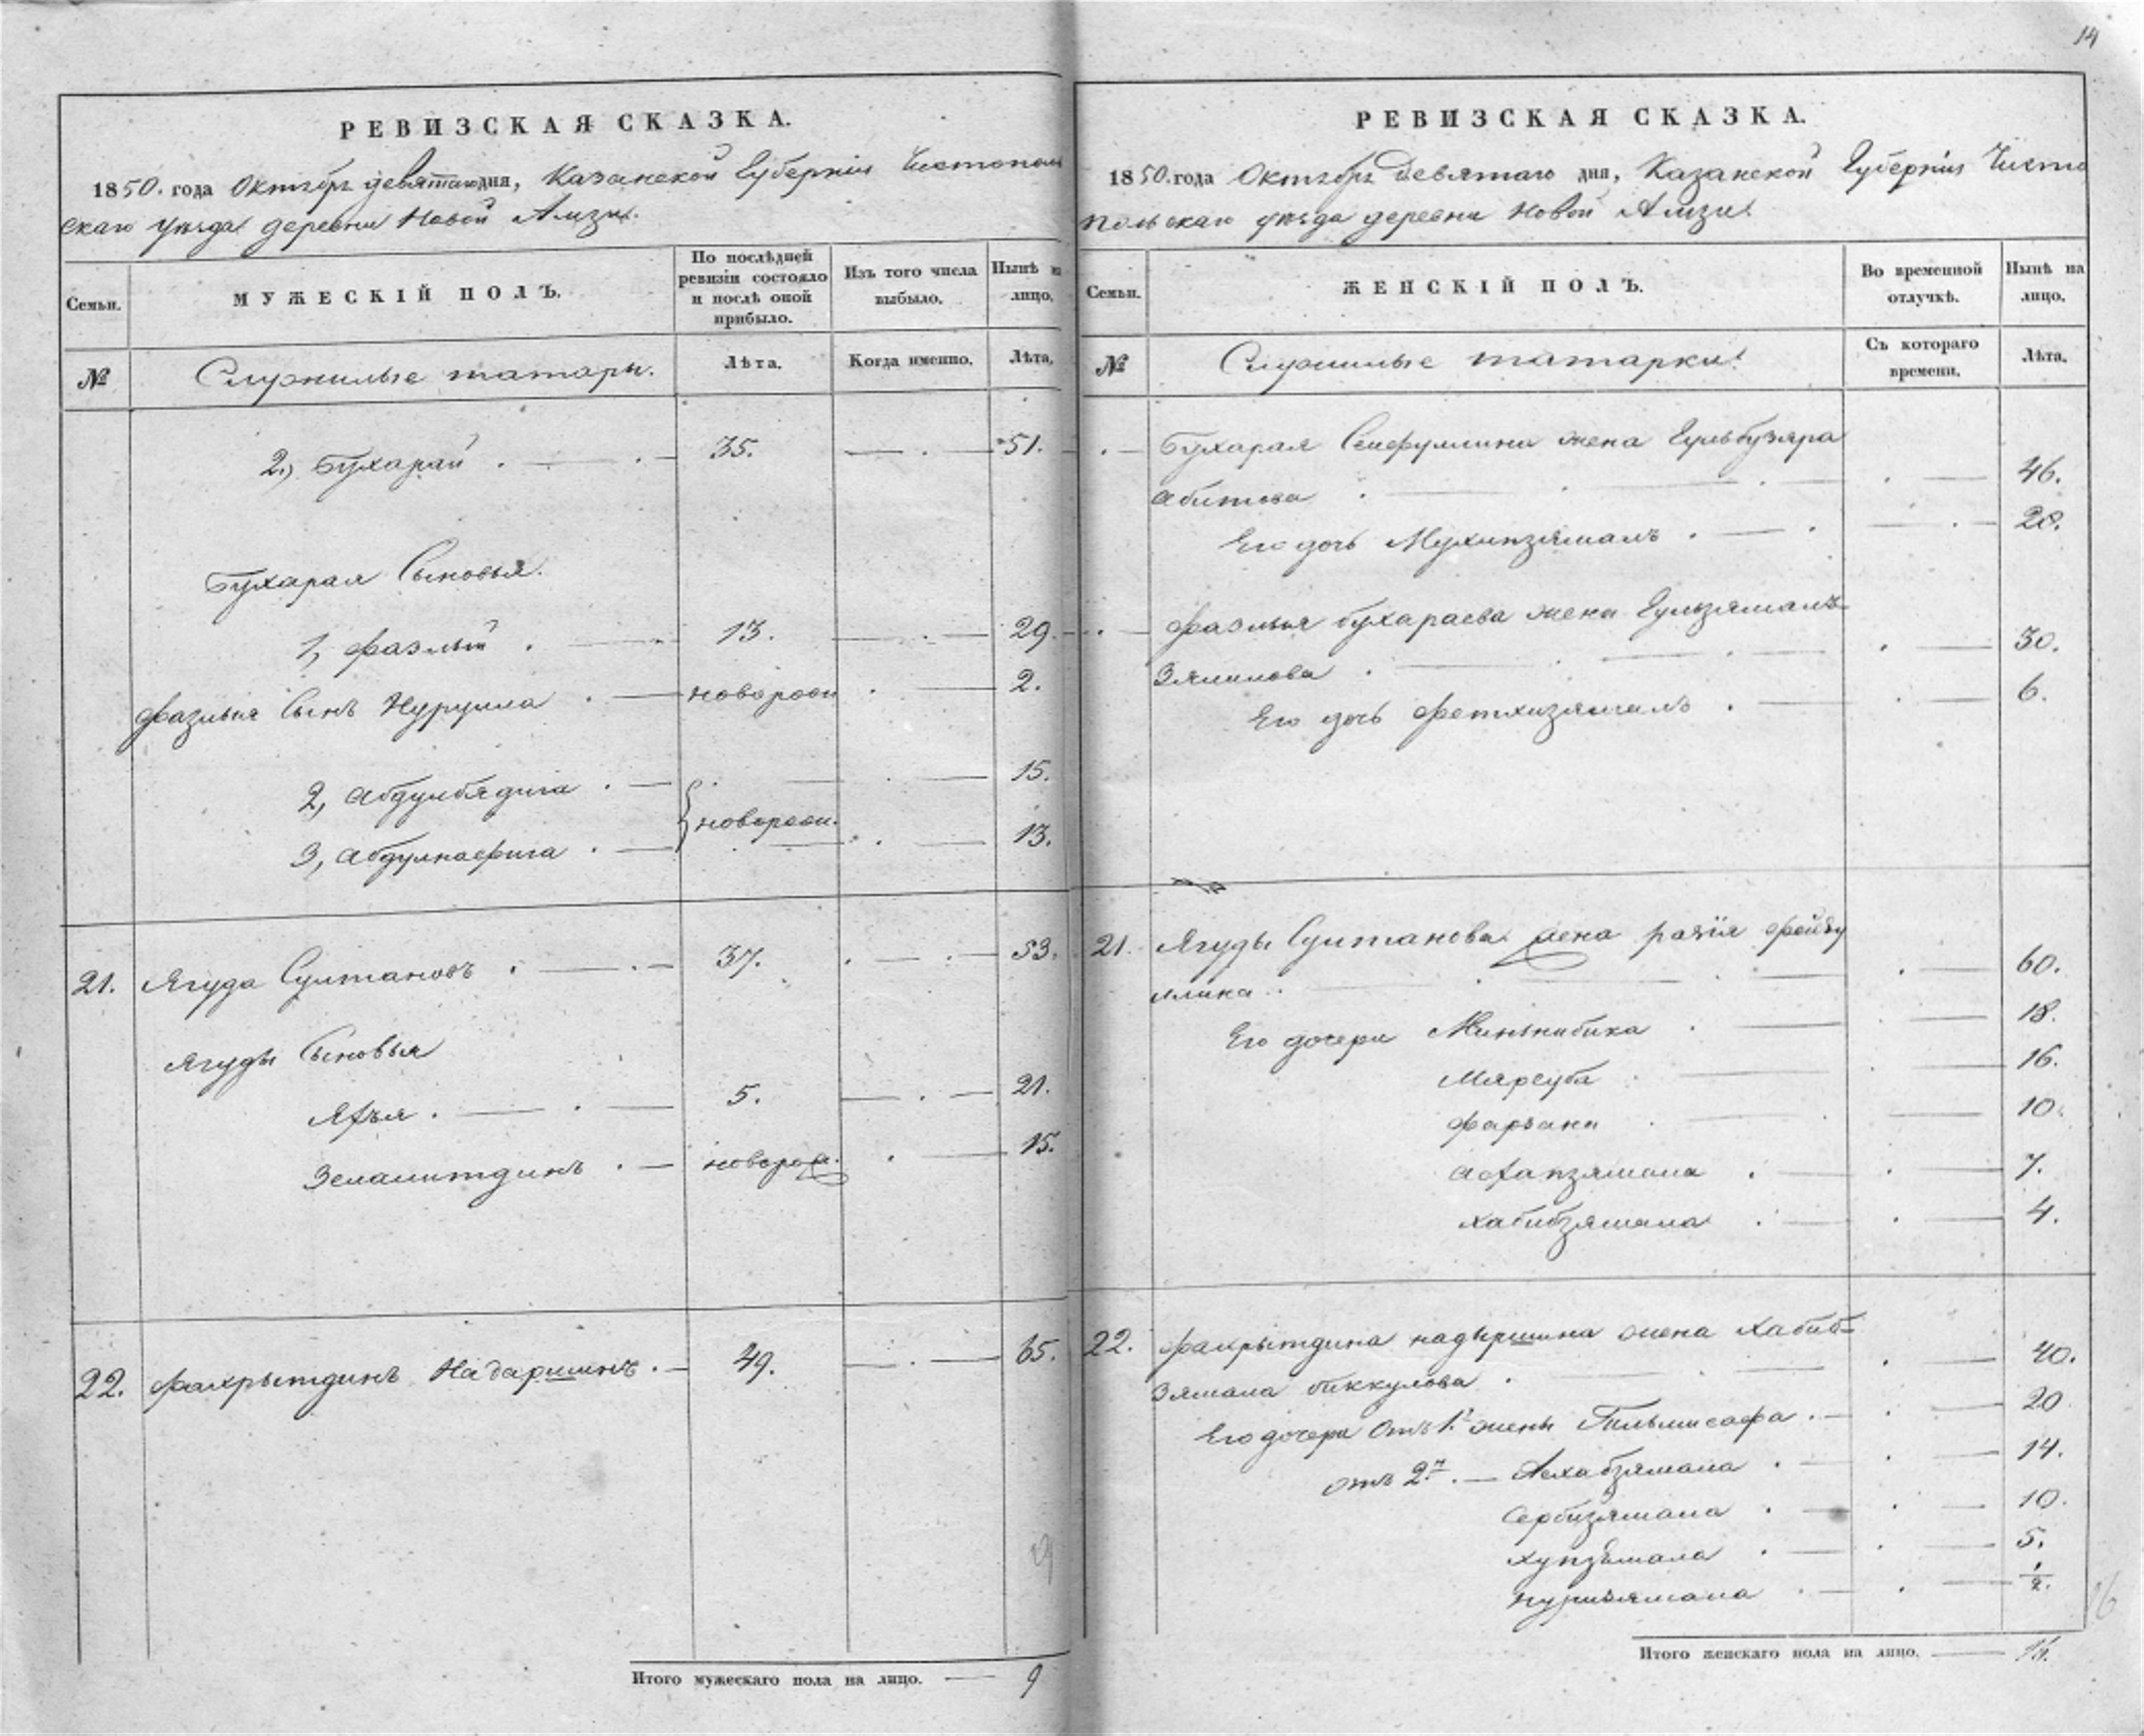 14
РЕВИЗСКАЯ СКАЗКА.
1850. года Октября девятаго дня, Казанской Губерніи Чистополь
скаго уезда деревни Новой Амзи.
Семьи.
МУЖЕСКІЙ ПОЛЪ.
По послѣдней ревизіи состояло и послѣ оной прибыло.
Изъ того числа выбыло.
Нынѣ на лицо.
№
Служилые татары.
Лѣта.
Когда именно.
Лѣта.
2., Бухарай . — . — 35. — . — 51.
Бухарая Сыновья.
1, Фазлый . — 13. — . — 29.
Фазлыя Сынъ Нурулла . — новорож . — 2.
2, Абдулбядига . — . — 15.
новорож.
3, Абдулнафига . — . — 13.
21. Ягуда Султановъ . — . — 37. . — . — 53.
Ягуды Сыновья
Яхъя . — . — 5. — . — 21.
Земалитдинъ . — новорож. . — 15.
22. Фахрытдинъ Надаршинъ . — 49. — . — 65.
9
Итого мужескаго пола на лицо. — 9
РЕВИЗСКАЯ СКАЗКА.
1850. года Октября Девятаго дня, Казанской Губерніи Чисто
польскаго уезда деревни Новой Амзи.
Семьи.
ЖЕНСКІЙ ПОЛЪ.
Во временной отлучкѣ.
Нынѣ на лицо.
№
Служилые татарки.
Съ котораго времени.
Лѣта.
Бухарая Сейфуллина жена Гульбузяра
Абитова . — . — 46.
Его дочь Мухипзямалъ . — . — . — 20.
Фазлыя Бухараева жена Гульзямалъ
Зялилова . — . — . — 30.
Его дочь Фетхизямалъ . — . — 6.
21. Ягуды Султанова жена Разія Фейзу
ллина . — . — . — 60.
Его дочери Миньнибика . — . — 18.
Мярсуба . — . — 16.
Фарзана . — 10.
Афапзямала . — . — 7.
Хабибзямала . — . — 4.
22. Фахрытдина Надыршина жена Хабиб=
зямала Биккулова . — . — 40.
Его дочери отъ 1й жены Гильмисафа . — . — 20
отъ 2й . — Асхабзямала . — . — 14.
Сербизямала . — . — 10.
Хупзямала . — . — 5.
Нуризямала . — . — 1/2.
16
Итого женскаго пола на лицо. —